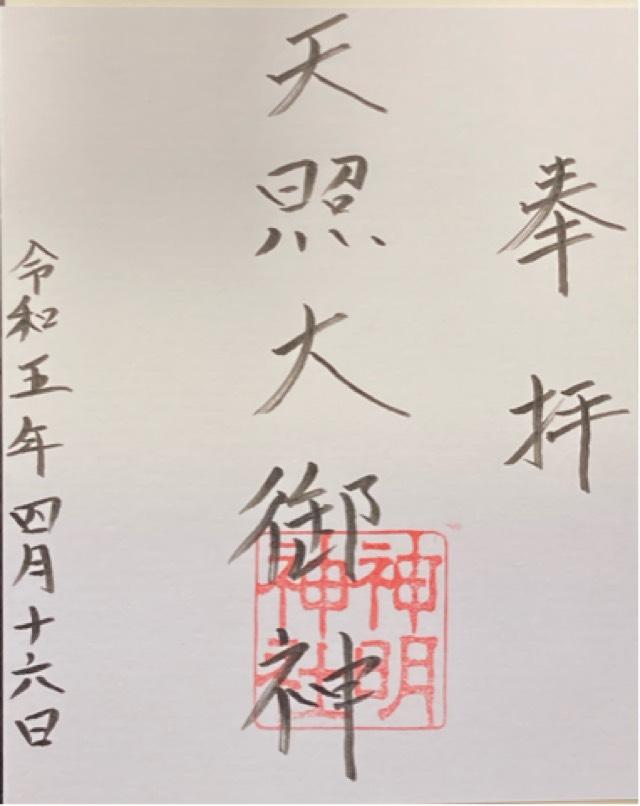 奉拝
天照大御神
神明
神社
令和五年四月十六日